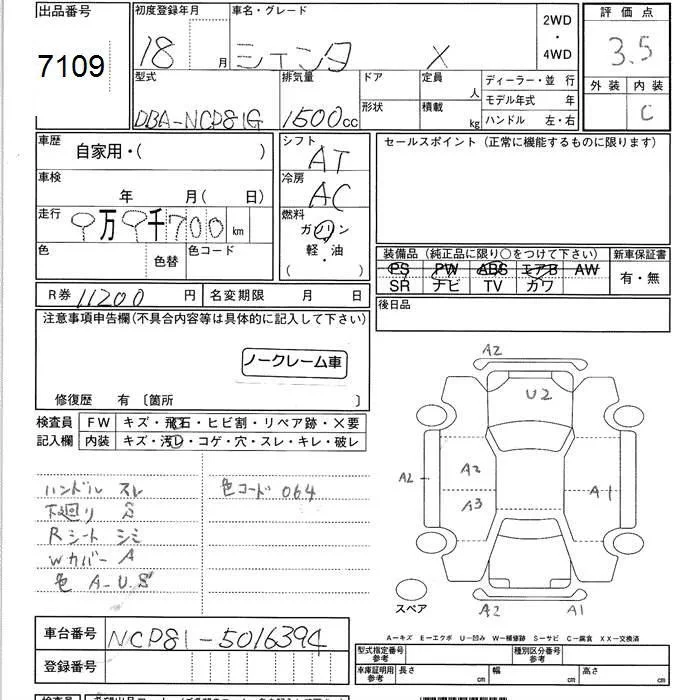 出品番号
7109
初度登録年月
18年 月
車名・グレード
シエンタ X
2WD
・
4WD
評価点
3.5
外装 内装
C
型式
DBA-NCP81G
排気量
1500cc
ドア
形状
定員
人
積載
kg
ディーラー・並 行
モデル年式 年
ハンドル 左・右
車歴
自家用・( )
車検
年 月( 日)
走行
万 千700km
色
色替
色コード
シフト
AT
冷房
AC
燃料
ガソリン
軽・油
( )
セールスポイント (正常に機能するものに限ります)
装備品 (純正品に限り○をつけて下さい)
PS PW ABS エアB AW
SR ナビ TV カワ
新車保証書
有・無
後日品
R券 11200 円
名変期限 月 日
注意事項申告欄(不具合内容等は具体的に記入して下さい)
ノークレーム車
修復歴 有 〔箇所 〕
検査員
記入欄
FW キズ・飛石・ヒビ割・リペア跡・×要
内装 キズ・汚レ・コゲ・穴・スレ・キレ・破レ
ハンドル スレ
下廻り S
Rシート シミ
Wカバー A
色 A-U.S
色コード 064
A2
U2
A2
A2
A3
A1
A2
A1
スペア
A-キズ E-エクボ U-凹み W-補修跡 S-サビ C-腐食 XX-交換済
車台番号
NCP81-5016394
登録番号
型式指定番号
参考
種別区分番号
参考
車庫証明用
参考
長さ cm
幅 cm
高さ cm
検査員